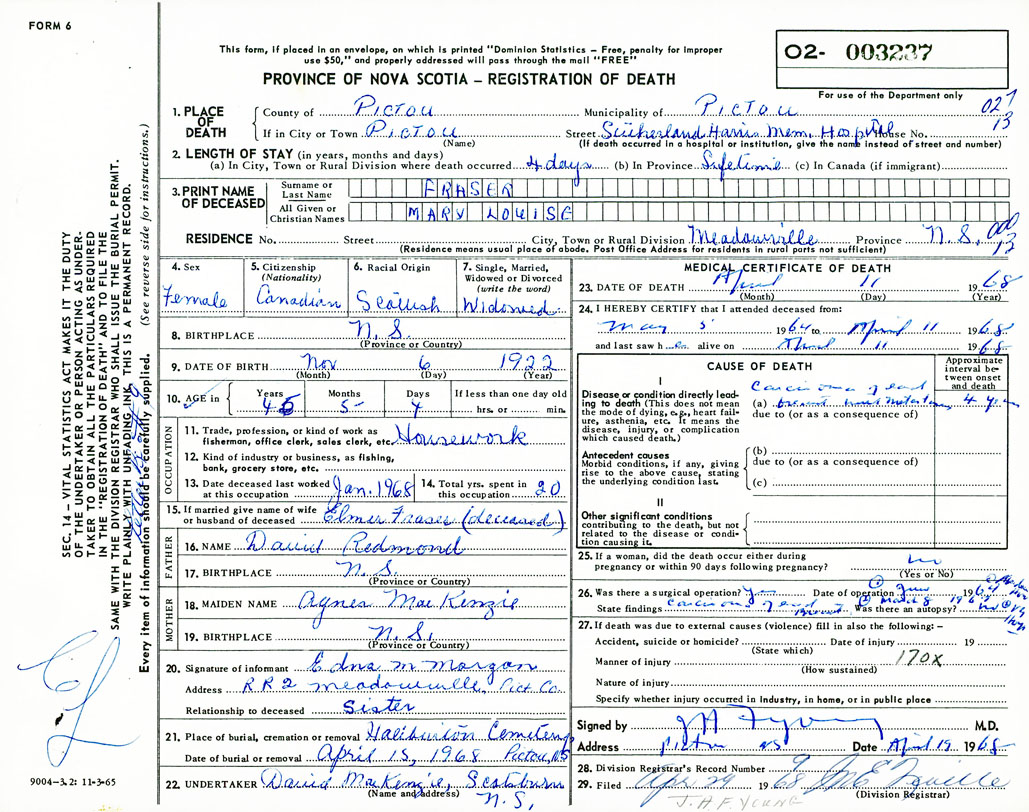 FORM 6
This form, if placed in an envelope, on which is printed "Dominion Statistics – Free, penalty for improper
use $50," and properly addressed will pass through the mail "FREE"
O2- 003237
PROVINCE OF NOVA SCOTIA – REGISTRATION OF DEATH
For use of the Department only
1. PLACE OF DEATH County of Pictou Municipality of Pictou 027
If in City or Town Pictou Street Sutherland Harris Mem. Hospital House No. 13
(Name) (If death occurred in a hospital or institution, give the name instead of street and number)
2. LENGTH OF STAY (in years, months and days)
(a) In City, Town or Rural Division where death occurred 4 days (b) In Province Lifetime (c) In Canada (if immigrant)
3. PRINT NAME OF DECEASED Surname or Last Name FRASER
All Given or Christian Names MARY LOUISE
RESIDENCE No. Street City, Town or Rural Division Meadowville Province N.S. 000 13
(Residence means usual place of abode. Post Office Address for residents in rural parts not sufficient)
4. Sex Female
5. Citizenship (Nationality) Canadian
6. Racial Origin Scottish
7. Single, Married, Widowed or Divorced (write the word) Widowed
8. BIRTHPLACE N.S.
(Province or Country)
9. DATE OF BIRTH Nov 6 1922
(Month) (Day) (Year)
10. AGE in Years 45 Months 5 Days 4 If less than one day old hrs. or min.
OCCUPATION
11. Trade, profession, or kind of work as fisherman, office clerk, sales clerk, etc. Housework
12. Kind of industry or business, as fishing, bank, grocery store, etc.
13. Date deceased last worked at this occupation Jan. 1968
14. Total yrs. spent in this occupation 20
15. If married give name of wife or husband of deceased Elmer Fraser (deceased)
FATHER
16. NAME David Redmond
17. BIRTHPLACE N.S.
(Province or Country)
MOTHER
18. MAIDEN NAME Agnes MacKenzie
19. BIRTHPLACE N.S.
(Province or Country)
20. Signature of informant Edna M Morgan
Address RR2 Meadowville, Pict Co.
Relationship to deceased Sister
21. Place of burial, cremation or removal Haliburton Cemetery
Date of burial or removal April 15, 1968 Pictou, NS
22. UNDERTAKER David MacKenzie, Scotsburn
(Name and address) N.S.
MEDICAL CERTIFICATE OF DEATH
23. DATE OF DEATH April 11 1968
(Month) (Day) (Year)
24. I HEREBY CERTIFY that I attended deceased from:
May 5 1964 to April 11 1968
and last saw h er alive on April 11 1968
CAUSE OF DEATH
Approximate interval between onset and death
I
Disease or condition directly leading to death (This does not mean the mode of dying, e.g., heart failure, asthenia, etc. It means the disease, injury, or complication which caused death.)
carcinoma of
(a) breast 4 yrs
due to (or as a consequence of)
Antecedent causes
Morbid conditions, if any, giving rise to the above cause, stating the underlying condition last.
(b)
due to (or as a consequence of)
(c)
II
Other significant conditions
contributing to the death, but not related to the disease or condition causing it.
25. If a woman, did the death occur either during pregnancy or within 90 days following pregnancy? no
(Yes or No)
26. Was there a surgical operation? yes Date of operation June 196
State findings carcinoma of breast March 8 Was there an autopsy? no
27. If death was due to external causes (violence) fill in also the following: –
Accident, suicide or homicide? Date of injury 19
(State which)
Manner of injury 170X
(How sustained)
Nature of injury
Specify whether injury occurred in Industry, in home, or in public place
Signed by M.D.
Address Pictou NS Date April 19 1968
28. Division Registrar's Record Number
29. Filed Apr 29 1968
(Division Registrar)
J.H.F. YOUNG
SEC. 14 – VITAL STATISTICS ACT MAKES IT THE DUTY
OF THE UNDERTAKER OR PERSON ACTING AS UNDER-
TAKER TO OBTAIN ALL THE PARTICULARS REQUIRED
IN THE "REGISTRATION OF DEATH" AND TO FILE THE
SAME WITH THE DIVISION REGISTRAR WHO SHALL ISSUE THE BURIAL PERMIT.
WRITE PLAINLY WITH UNFADING INK. THIS IS A PERMANENT RECORD.
Every item of information should be carefully supplied. (See reverse side for instructions.)
9004-3.2: 11-3-65